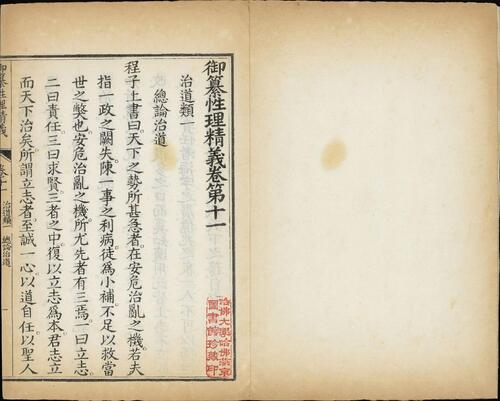 御纂性理精義卷第十一
治道類一
總論治道
程子上書曰天下之勢所甚急者在安危治亂之機若夫
指一政之闕失陳一事之利病徒為小補不足以救當
世之弊也安危治亂之機所尤先者有三焉一曰立志
二曰責任三曰求賢三者之中復以立志為本君志立
而天下治矣所謂立志者至誠一心以道自任以聖人
御纂性理精義
卷十一
治道類一
總論治道
一
哈佛大學哈佛燕京
圖書館珍藏印